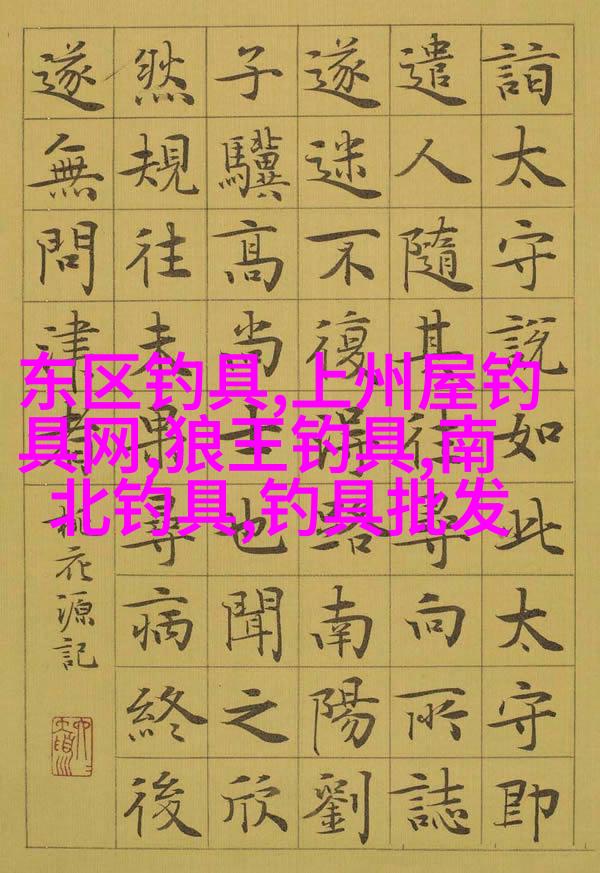 詣太守說如此太守即
遣人隨其往尋向所誌
遂迷不復得路南陽劉
子驥高尚士也聞之欣
然規往未果尋病終後
遂無問津者
桃花源記
东区钓具,上州屋钓
具网,狼王钓具,南
北钓具,钓具批发